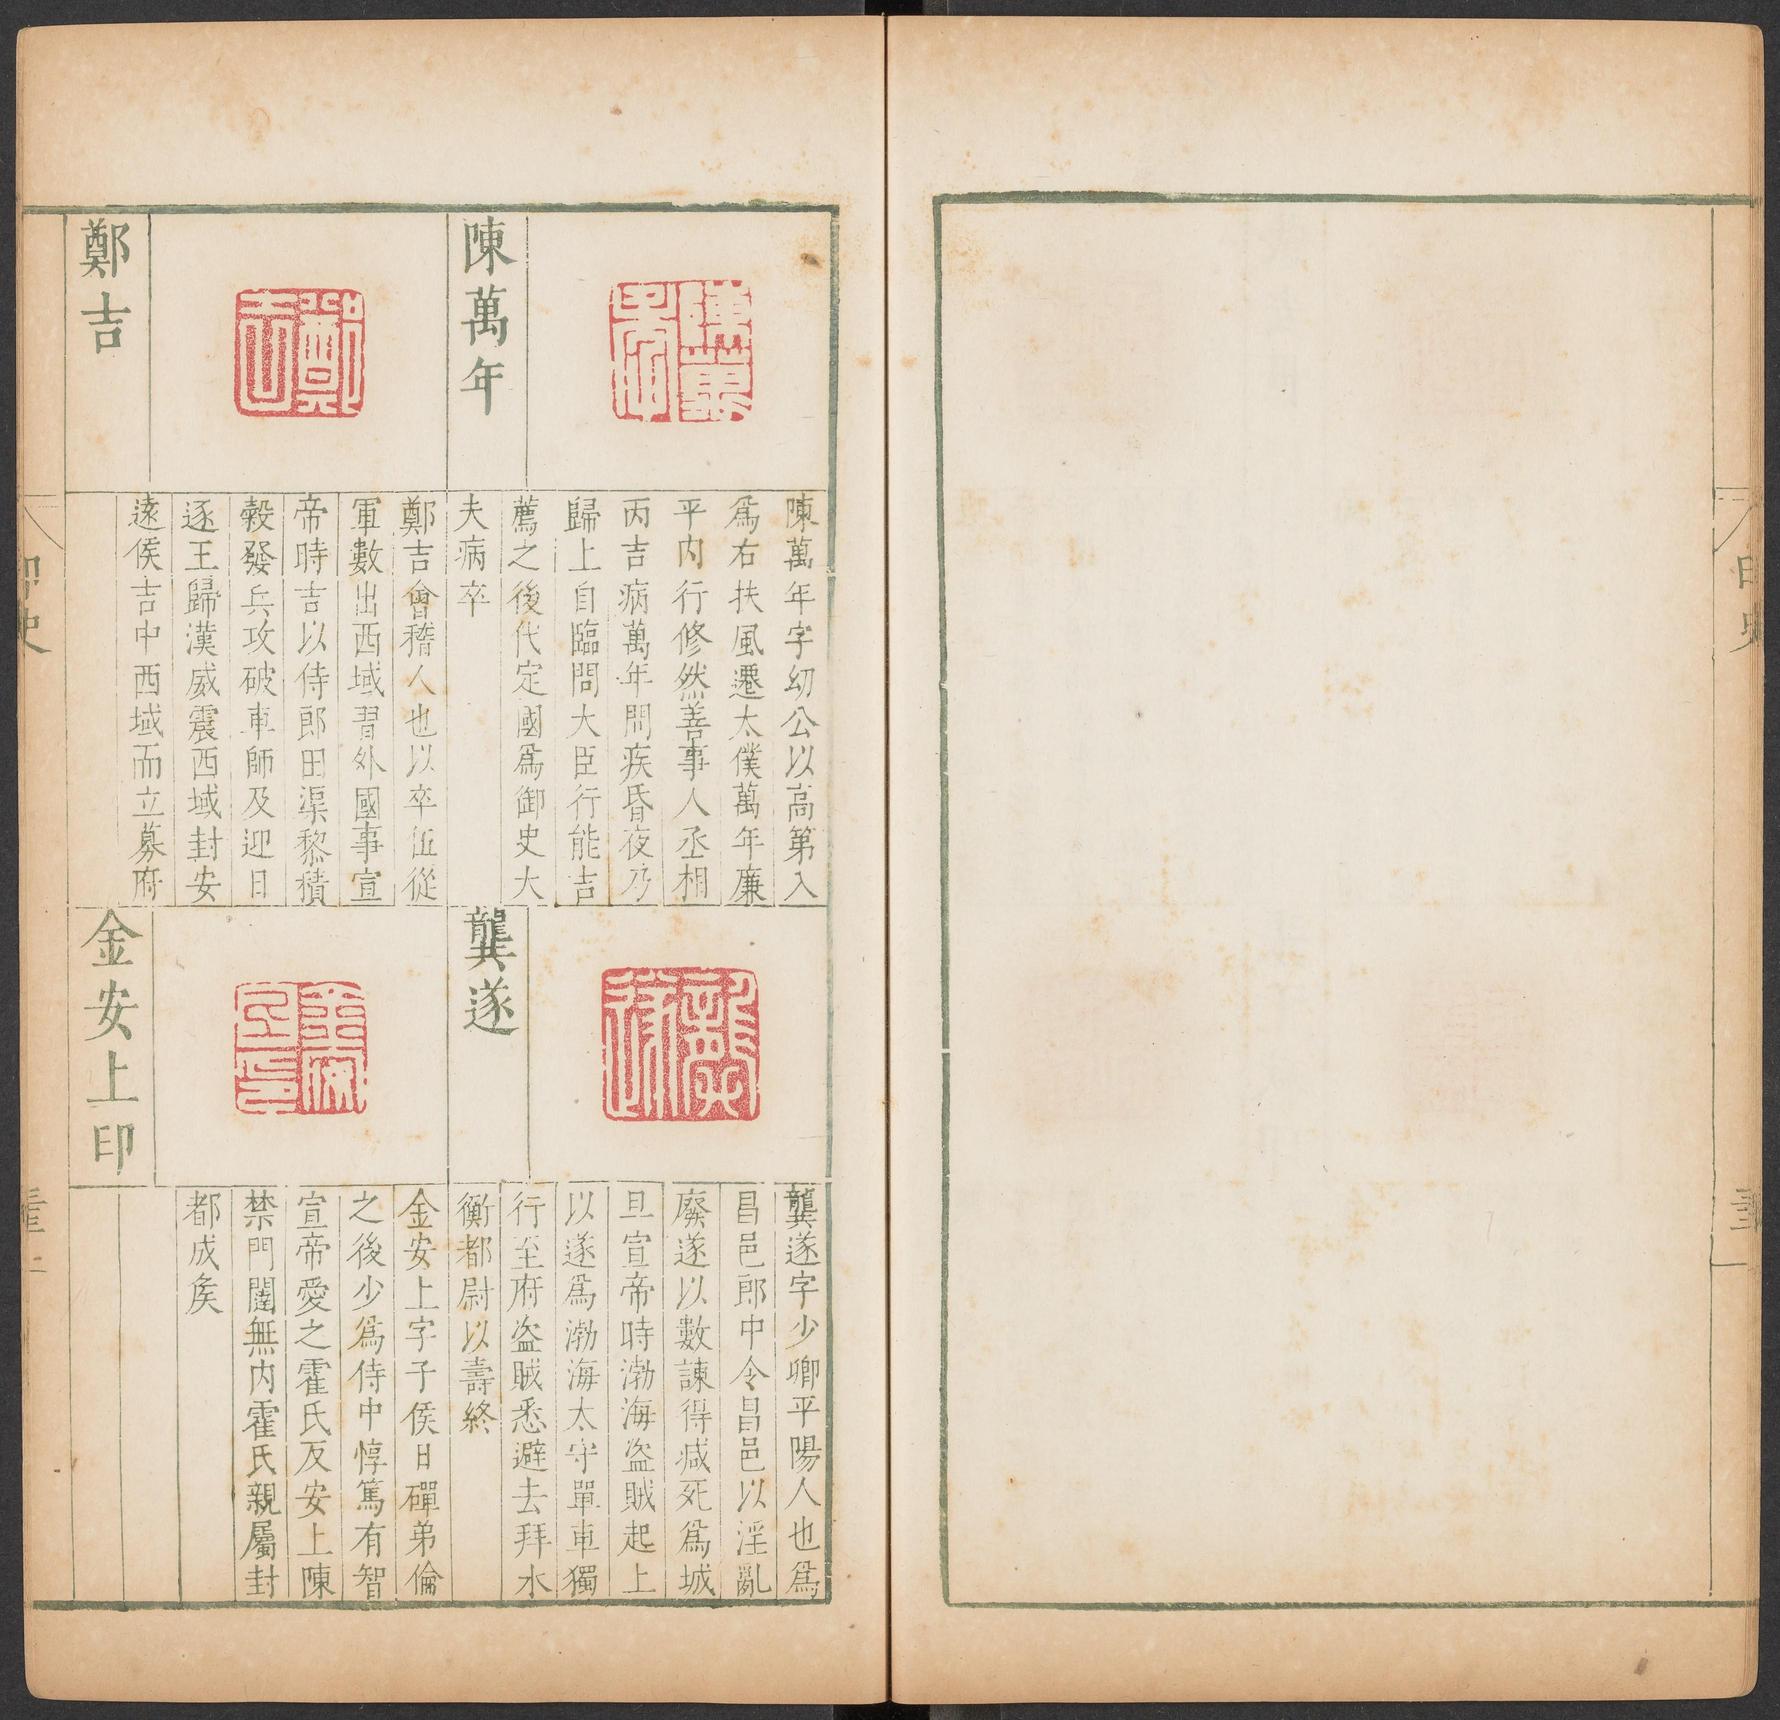 陳萬年
陳萬年字幼公以高第入
爲右扶風遷太僕萬年廉
平内行修然善事人丞相
丙吉病萬年問疾昏夜乃
歸上自臨問大臣行能吉
薦之後代定國爲御史大
夫病卒
鄭吉
鄭吉會稽人也以卒伍從
軍數出西域習外國事宣
帝時吉以侍郎田渠黎積
穀發兵攻破車師及迎日
逐王歸漢威震西域封安
遠侯吉中西域而立幕府
龔遂
龔遂字少卿平陽人也爲
昌邑郎中令昌邑以淫亂
廢遂以數諫得減死爲城
旦宣帝時渤海盗賊起上
以遂爲渤海太守單車獨
行至府盗賊悉避去拜水
衡都尉以壽終
金安上印
金安上字子侯日磾弟倫
之後少爲侍中惇篤有智
宣帝愛之霍氏反安上陳
禁門闥無内霍氏親屬封
都成矦
印史